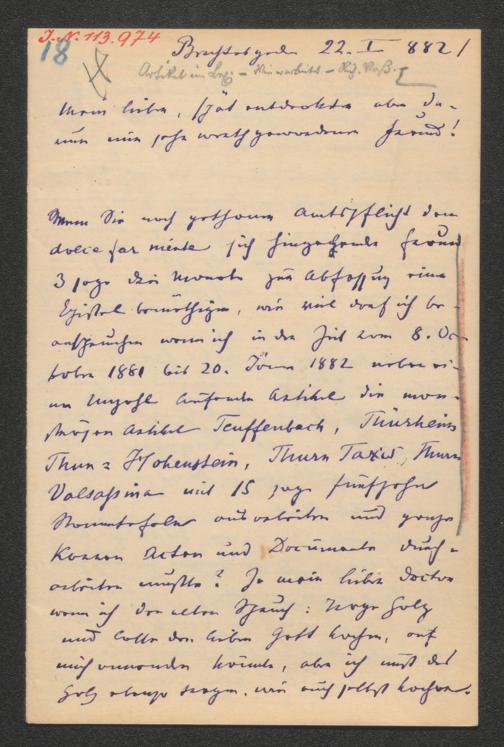 I.N. 113.974
18
Berchtesgaden 22. I 882/
Artikel im Lex. –
Mein lieber, spät entdeckter aber da-
rum mir sehr werth gewordener Freund!
Wenn Sie nach gethaner Amtspflicht dem
dolce far niente sich hingebende Freund
3 sage drei Monate zur Abfassung einer
Epistel benöthigen, wie viel darf ich be-
anspruchen wenn ich in der Zeit vom 8. Oc-
tober 1881 bis 20. Jänner 1882 neben ei-
ner Unzahl Artikel die mon-
strösen Artikel Teuffenbach, Thürheim
Thun=Hohenstein, Thurn Taxis, Thurn
Valsassina mit 15 sage fünfzehn
Stammtafeln ausarbeiten und ganze
Acten und Documente durch-
arbeiten mußte? Ja mein lieber Doctor
wenn ich den alten Spruch: Trage Holz
und lasse den lieben Gott kochen, auf
mich anwenden könnte, aber ich muß das
Holz ebenso tragen, wie auch selbst kochen.